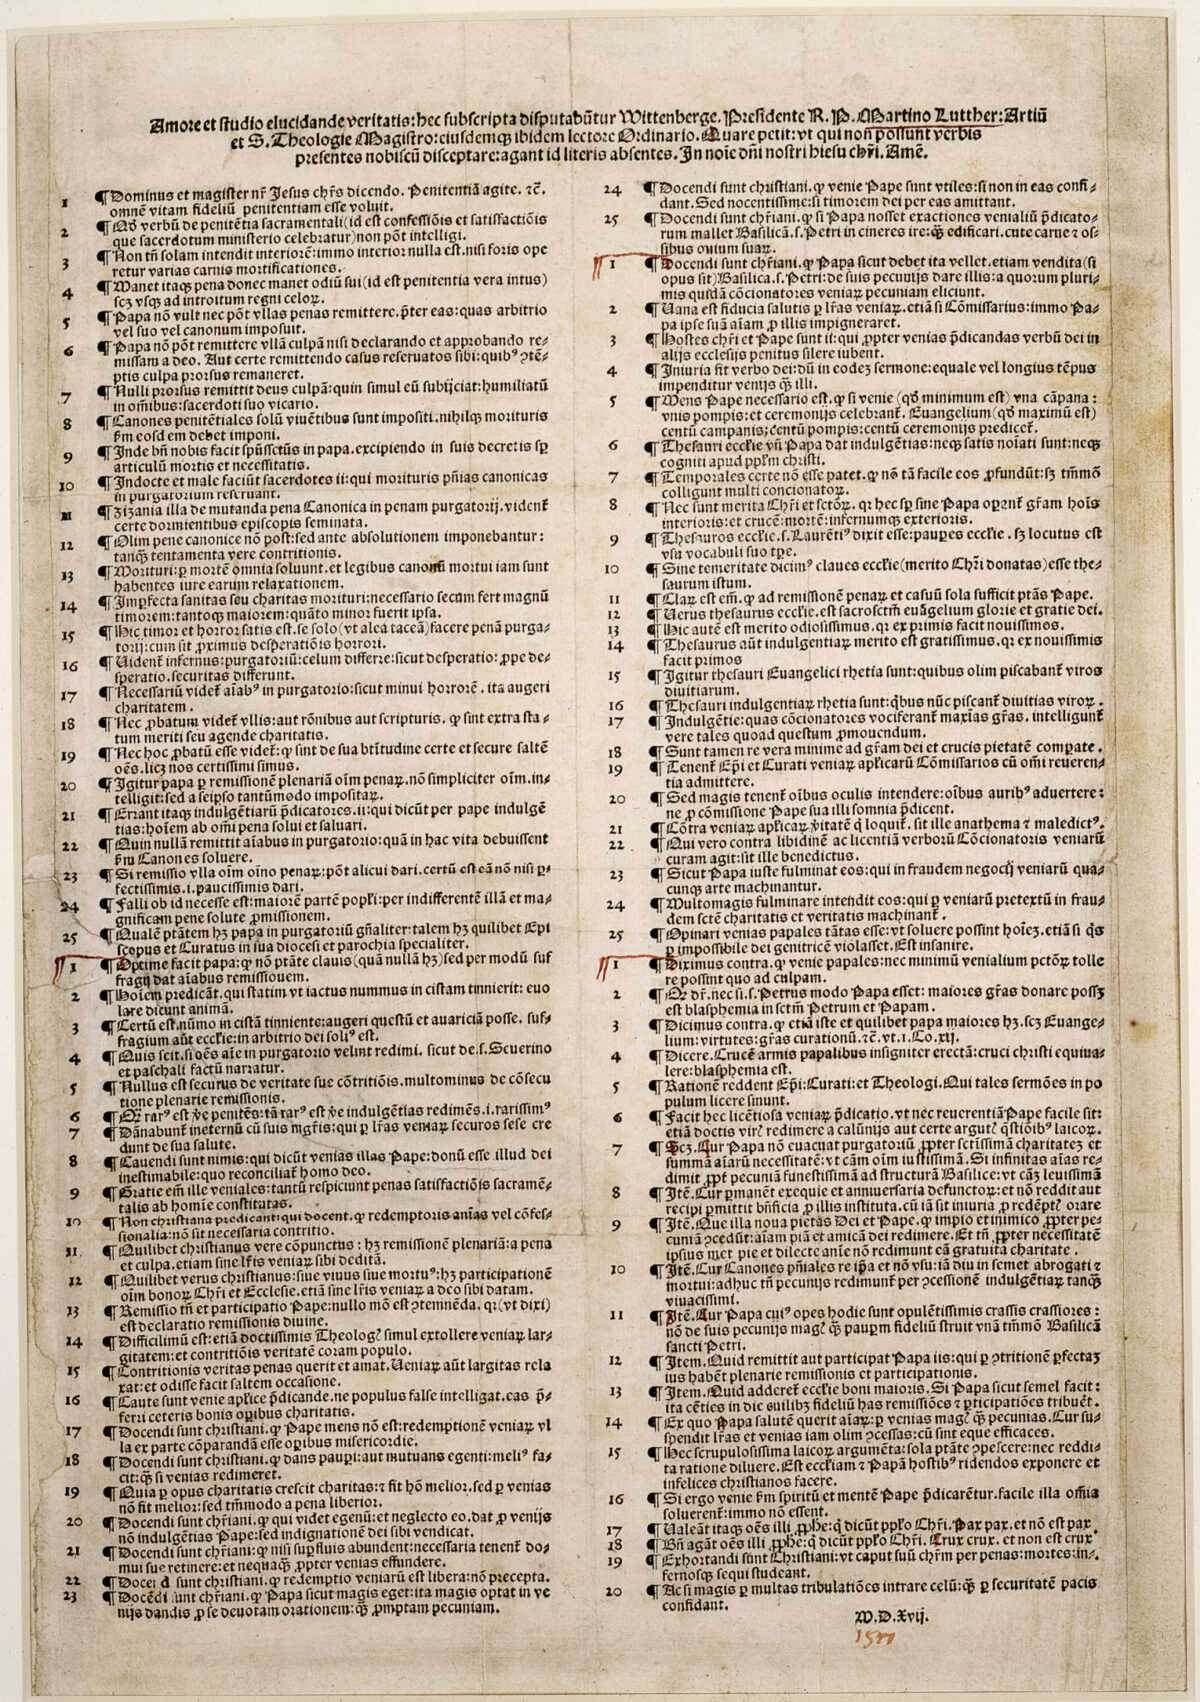 Amore et studio elucidande veritatis: hec subscripta disputabũtur Wittenberge. Presidente R. P. Martino Lutther: Artiũ
et S. Theologie Magistro: eiusdemqꝫ ibidem lectore Ordinario. Quare petit: vt qui non possunt verbis
presentes nobiscũ disceptare: agant id literis absentes. In noĩe dñi nostri hiesu chr̃i. Amẽ.
1 ¶ Dominus et magister nr̃ Jesus chr̃s dicendo. Penitentiã agite. ⁊c̃.
omnẽ vitam fideliũ penitentiam esse voluit.
2 ¶ Qđ verbũ de penitẽtia sacramentali (id est confessiõis et satisfactiõis
que sacerdotum ministerio celebratur) non põt intelligi.
3 ¶ Non tñ solam intendit interiorẽ: immo interior nulla est. nisi foris ope
retur varias carnis mortificationes.
4 ¶ Manet itaqꝫ pena donec manet odiũ sui (id est penitentia vera intus)
scꝫ vsqꝫ ad introitum regni celoꝝ.
5 ¶ Papa nõ vult nec põt vllas penas remittere. p̃ter eas: quas arbitrio
vel suo vel canonum imposuit.
6 ¶ Papa nõ põt remittere vllã culpã nisi declarando et approbando re-
missam a deo. Aut certe remittendo casus reseruatos sibi: quibꝰ ꝯtẽ-
ptis culpa prorsus remaneret.
7 ¶ Nulli prorsus remittit deus culpã: quin simul eũ subijciat: humiliatũ
in om̃ibus: sacerdoti suo vicario.
8 ¶ Canones penitẽtiales solũ viuẽtibus sunt impositi. nihilqꝫ morituris
ẜm eosdem debet imponi.
9 ¶ Inde bñ nobis facit spũssctũs in papa. excipiendo in suis decretis sp̱
articulũ mortis et necessitatis.
10 ¶ Indocte et male faciũt sacerdotes ii: qui morituris pñias canonicas
in purgatorium reseruant.
11 ¶ Zizania illa de mutanda pena Canonica in penam purgatorij. vident̃
certe dormientibus episcopis seminata.
12 ¶ Olim pene canonice nõ post: sed ante absolutionem imponebantur:
tanqꝫ tentamenta vere contritionis.
13 ¶ Morituri: ꝑ mortẽ omnia soluunt. et legibus canonũ mortui iam sunt
habentes iure earum relaxationem.
14 ¶ Imꝑfecta sanitas seu charitas morituri: necessario secum fert magnũ
timorem: tantoqꝫ maiorem: quãto minor fuerit ipsa.
15 ¶ Hic timor et horror satis est. se solo (vt alea taceã) facere penã purga-
torij: cum sit ꝓximus desꝑationis horrori.
16 ¶ Vident̃ infernus: purgatoriũ: celum differre: sicut desperatio: ꝓpe de-
speratio. securitas differunt.
17 ¶ Necessariũ videt̃ aĩabꝰ in purgatorio: sicut minui horrorẽ. ita augeri
charitatem.
18 ¶ Nec ꝓbatum videt̃ vllis: aut rõnibus aut scripturis. ꝙ sint extra sta-
tum meriti seu agende charitatis.
19 ¶ Nec hoc ꝓbatũ esse videt̃: ꝙ sint de sua btĩtudine certe et secure saltẽ
oẽs. licꝫ nos certissimi simus.
20 ¶ Igitur papa ꝑ remissionẽ plenariã oĩm penaꝝ. nõ simpliciter oĩm. in-
telligit: sed a seipso tantũmodo impositaꝝ.
21 ¶ Errant itaqꝫ indulgẽtiarũ p̃dicatores. ii: qui dicũt per pape indulgẽ
tias: hoĩem ab om̃i pena solui et saluari.
22 ¶ Quin nullã remittit aĩabus in purgatorio: quã in hac vita debuissent
ẜm Canones soluere.
23 ¶ Si remissio vlla oĩm oĩno penaꝝ: põt alicui dari. certũ est eã nõ nisi ꝑ-
fectissimis. i. paucissimis dari.
24 ¶ Falli ob id necesse est: maiorẽ partẽ popl̃i: per indifferentẽ illã et ma-
gnificam pene solute ꝓmissionem.
25 ¶ Qualẽ ptãtem hꝫ papa in purgatoriũ gñaliter: talem hꝫ quilibet Epi
scopus et Curatus in sua diocesi et parochia specialiter.
1 ¶ Optime facit papa: ꝙ nõ ptãte clauis (quã nullã hꝫ) sed per modũ suf
fragij dat aĩabus remissiouem.
2 ¶ Hoĩem predicãt. qui statim vt iactus nummus in cistam tinnierit: euo
lare dicunt animã.
3 ¶ Certũ est. nũmo in cistã tinniente: augeri questũ et auariciã posse. suf-
fragium aũt ecclĩe: in arbitrio dei solĩꝰ est.
4 ¶ Quis scit. si oẽs aĩe in purgatorio velint redimi. sicut de. s. Seuerino
et paschali factũ narratur.
5 ¶ Nullus est securus de veritate sue cõtritiõis. multominus de cõsecu
tione plenarie remissionis.
6 ¶ Qꝫ rarꝰ est ꝟe penitẽs: tã rarꝰ est ꝟe indulgẽtias redimẽs. i. rarissimꝰ
7 ¶ Dãnabunt̃ ineternũ cũ suis mgr̃is: qui ꝑ lr̃as veniaꝝ securos sese cre
dunt de sua salute.
8 ¶ Cauendi sunt nimis: qui dicũt venias illas Pape: donũ esse illud dei
inestimabile: quo reconciliat̃ homo deo.
9 ¶ Gratie em̃ ille veniales: tantũ respiciunt penas satisfactiõis sacramẽ-
talis ab homĩe constitutas.
10 ¶ Non christiana predicant: qui docent. ꝙ redemptoris aĩas vel cõfes-
sionalia: nõ sit necessaria contritio.
11 ¶ Quilibet christianus vere cõpunctus: hꝫ remissionẽ plenariã: a pena
et culpa. etiam sine lr̃is veniaꝝ sibi debitã.
12 ¶ Quilibet verus christianus: siue viuus siue mortuꝰ: hꝫ participationẽ
oĩm bonoꝝ Chr̃i et Ecclesie. etiã sine lr̃is veniaꝝ a deo sibi datam.
13 ¶ Remissio tñ et participatio Pape: nullo mõ est ꝯtemnẽda. qꝛ (vt dixi)
est declaratio remissionis diuine.
14 ¶ Difficilimũ est: etiã doctissimis Theologꝭ simul extollere veniaꝝ lar-
gitatem: et contritiõis veritatẽ coram populo.
15 ¶ Contritionis veritas penas querit et amat. Veniaꝝ aũt largitas rela
xat: et odisse facit saltem occasione.
16 ¶ Caute sunt venie apl̃ice p̃dicande. ne populus false intelligat. eas p̃-
ferri ceteris bonis oꝑibus charitatis.
17 ¶ Docendi sunt christiani. ꝙ Pape mens nõ est: redemptionẽ veniaꝝ vl
la ex parte cõparandã esse oꝑibus misericordie.
18 ¶ Docendi sunt christiani. ꝙ dans pauꝑi: aut mutuans egenti: meliꝰ fa-
cit: qꝫ si venias redimeret.
19 ¶ Quia ꝑ opus charitatis crescit charitas: ⁊ fit hõ melior. sed ꝑ venias
nõ fit melior: sed tm̃modo a pena liberior.
20 ¶ Docendi sunt chr̃iani. ꝙ qui videt egenũ: et neglecto eo. dat ꝓ venijs
nõ indulgẽtias Pape: sed indignationẽ dei sibi vendicat.
21 ¶ Docendi sunt chr̃iani. ꝙ nisi suꝑfluis abundent: necessaria tenent̃ do-
mui sue retinere: et nequaqꝫ ꝓpter venias effundere.
22 ¶ Docendi sunt christiani. ꝙ redemptio veniarũ est libera: nõ precepta.
23 ¶ Docẽdi sunt chr̃iani. ꝙ Papa sicut magis eget: ita magis optat in ve
nijs dandis ꝓ se deuotam orationem: qꝫ ꝓmptam pecuniam.
24 ¶ Docendi sunt christiani. ꝙ venie Pape sunt vtiles: si non in eas confi-
dant. Sed nocentissime: si timorem dei per eas amittant.
25 ¶ Docendi sunt chr̃iani. ꝙ si Papa nosset exactiones venialiũ p̃dicato-
rum mallet Basilicã. s. Petri in cineres ire: qꝫ edificari. cute carne ⁊ os-
sibus ouium suaꝝ.
1 ¶ Docendi sunt chr̃iani. ꝙ Papa sicut debet ita vellet. etiam vendita (si
opus sit) Basilica. s. Petri: de suis pecunijs dare illis: a quorum pluri-
mis quidã cõcionatores veniaꝝ pecuniam eliciunt.
2 ¶ Vana est fiducia salutis ꝑ lr̃as veniaꝝ. etiã si Cõmissarius: immo Pa-
pa ipse suã aĩam ꝓ illis impigneraret.
3 ¶ Hostes chr̃i et Pape sunt ii: qui ꝓpter venias p̃dicandas verbũ dei in
alijs ecclesijs penitus silere iubent.
4 ¶ Iniuria fit verbo dei: dũ in eodeꝫ sermone: equale vel longius tẽpus
impenditur venijs qꝫ illi.
5 ¶ Mens Pape necessario est. ꝙ si venie (qđ minimum est) vna cãpana:
vnis pompis: et ceremonijs celebrant̃. Euangelium (qđ maximũ est)
centũ campanis: centũ pompis: centũ ceremonijs predicet̃.
6 ¶ Thesauri ecclĩe vñ Papa dat indulgẽtias: neqꝫ satis noĩati sunt: neqꝫ
cogniti apud ppl̃m christi.
7 ¶ Temporales certe nõ esse patet. ꝙ nõ tã facile eos ꝓfundũt: sꝫ tm̃mõ
colligunt multi concionatoꝝ.
8 ¶ Nec sunt merita Chr̃i et sctõꝝ. qꝛ hec sꝑ sine Papa oꝑant̃ gr̃am hoĩs
interioris: et crucẽ: mortẽ: infernumqꝫ exterioris.
9 ¶ Thesauros ecclĩe. s. Laurẽtiꝰ dixit esse: pauꝑes ecclĩe. sꝫ locutus est
vsu vocabuli suo tꝑe.
10 ¶ Sine temeritate dicimꝰ claues ecclĩe (merito Chr̃i donatas) esse the-
saurum istum.
11 ¶ Claꝝ est em̃. ꝙ ad remissionẽ penaꝝ et casuũ sola sufficit ptãs Pape.
12 ¶ Verus thesaurus ecclĩe. est sacrosctm̃ euãgelium glorie et gratie dei.
13 ¶ Hic autẽ est merito odiosissimus. qꝛ ex primis facit nouissimos.
14 ¶ Thesaurus aũt indulgentiaꝝ merito est gratissimus. qꝛ ex nouissimis
facit primos
15 ¶ Igitur thesauri Euangelici rhetia sunt: quibus olim piscabant̃ viros
diuitiarum.
16 ¶ Thesauri indulgentiaꝝ rhetia sunt: q̃bus nũc piscant̃ diuitias viroꝝ.
17 ¶ Indulgẽtie: quas cõcionatores vociferant̃ maxĩas gr̃as. intelligunt̃
vere tales quoad questum ꝓmouendum.
18 ¶ Sunt tamen re vera minime ad gr̃am dei et crucis pietatẽ comꝑate.
19 ¶ Tenent̃ Ep̃i et Curati veniaꝝ apl̃icarũ Cõmissarios cũ om̃i reueren-
tia admittere.
20 ¶ Sed magis tenent̃ oĩbus oculis intendere: oĩbus auribꝰ aduertere:
ne ꝓ cõmissione Pape sua illi somnia p̃dicent.
21 ¶ Cõtra veniaꝝ apl̃icaꝝ ꝟitatẽ q̃ loquit̃. sit ille anathema ⁊ maledictꝰ.
22 ¶ Qui vero contra libidinẽ ac licentiã verborũ Cõcionatoris veniarũ
curam agit: sit ille benedictus.
23 ¶ Sicut Papa iuste fulminat eos: qui in fraudem negocij veniarũ qua-
cunqꝫ arte machinantur.
24 ¶ Multomagis fulminare intendit eos: qui ꝑ veniarũ pretextũ in frau-
dem sctẽ charitatis et veritatis machinant̃.
25 ¶ Opinari venias papales tãtas esse: vt soluere possint hoĩeꝫ. etiã si q̃s
ꝑ impossibile dei genitricẽ violasset. Est insanire.
1 ¶ Diximus contra. ꝙ venie papales: nec minimũ venialium pctõꝝ tolle
re possint quo ad culpam.
2 ¶ Qꝫ dr̃. nec si. s. Petrus modo Papa esset: maiores gr̃as donare possꝫ
est blasphemia in sctm̃ Petrum et Papam.
3 ¶ Dicimus contra. ꝙ etiã iste et quilibet papa maiores hꝫ. scꝫ Euange-
lium: virtutes: gr̃as curationũ. ⁊c̃. vt. 1. Co. xij.
4 ¶ Dicere. Crucẽ armis papalibus insigniter erectã: cruci christi equiua-
lere: blasphemia est.
5 ¶ Rationẽ reddent Ep̃i: Curati: et Theologi. Qui tales sermões in po
pulum licere sinunt.
6 ¶ Facit hec licẽtiosa veniaꝝ p̃dicatio. vt nec reuerentiã Pape facile sit:
etiã doctis virꝭ redimere a calũnijs aut certe argutꝭ q̃stiõibꝰ laicoꝝ.
7 ¶ Scꝫ. Cur Papa nõ euacuat purgatoriũ ꝓpter sctĩssimã charitateꝫ et
summã aĩarũ necessitatẽ: vt cãm oĩm iustissimã. Si infinitas aĩas re-
dimit ꝓpt̃ pecuniã funestissimã ad structurã Basilice: vt cãꝫ leuissimã
8 ¶ Itẽ. Cur ꝑmanẽt exequie et anniuersaria defunctoꝝ: et nõ reddit aut
recipi ꝑmittit bñficia ꝓ illis instituta. cũ iã sit iniuria ꝓ redẽptꝭ orare
9 ¶ Itẽ. Que illa noua pietas Dei et Pape. ꝙ impio et inimico ꝓpter pe-
cuniã ꝯcedũt: aĩam piã et amicã dei redimere. Et tñ ꝓpter necessitatẽ
ipsius met pie et dilecte aĩe nõ redimunt eã gratuita charitate.
10 ¶ Itẽ. Cur Canones pñiales re ip̃a et nõ vsu: iã diu in semet abrogati ⁊
mortui: adhuc tñ pecunijs redimunt̃ ꝑ ꝯcessionẽ indulgẽtiaꝝ tanqꝫ
viuacissimi.
11 ¶ Itẽ. Cur Papa cuiꝰ opes hodie sunt opulẽtissimis crassis crassiores:
nõ de suis pecunijs magꝭ qꝫ pauꝑm fideliũ struit vnã tm̃mõ Basilicã
sancti Petri.
12 ¶ Item. Quid remittit aut participat Papa iis: qui ꝑ ꝯtritionẽ ꝑfectaꝫ
ius habẽt plenarie remissionis et participationis.
13 ¶ Item. Quid adderet̃ ecclĩe boni maioris. Si Papa sicut semel facit:
ita cẽties in die cuilibꝫ fideliũ has remissiões ⁊ ꝑticipationẽs tribuẽt.
14 ¶ Ex quo Papa salutẽ querit aĩaꝝ: ꝑ venias magꝭ qꝫ pecunias. Cur su-
spendit lr̃as et venias iam olim ꝯcessas: cũ sint eque efficaces.
15 ¶ Hec scrupulosissima laicoꝝ argumẽta: sola ptãte ꝯpescere: nec reddi-
ta ratione diluere. Est ecclĩam ⁊ Papã hostibꝰ ridendos exponere et
infelices christianos facere.
16 ¶ Si ergo venie ẜm spiritũ et mentẽ Pape p̃dicarẽtur. facile illa om̃ia
soluerent̃: immo nõ essent.
17 ¶ Valeãt itaqꝫ oẽs illi ꝓphe: q̃ dicũt pplo Chr̃i. Pax pax. et nõ est pax.
18 ¶ Bñ agãt oẽs illi ꝓphe: q̃ dicũt pplo Chr̃i. Crux crux. et non est crux
19 ¶ Exhortandi sunt Christiani: vt caput suũ chr̃m per penas: mortes: in-
fernosqꝫ sequi studeant.
20 ¶ Ac si magis ꝑ multas tribulatiões intrare celũ: qꝫ ꝑ securitatẽ pacis
confidant.
M.D.Xvij.